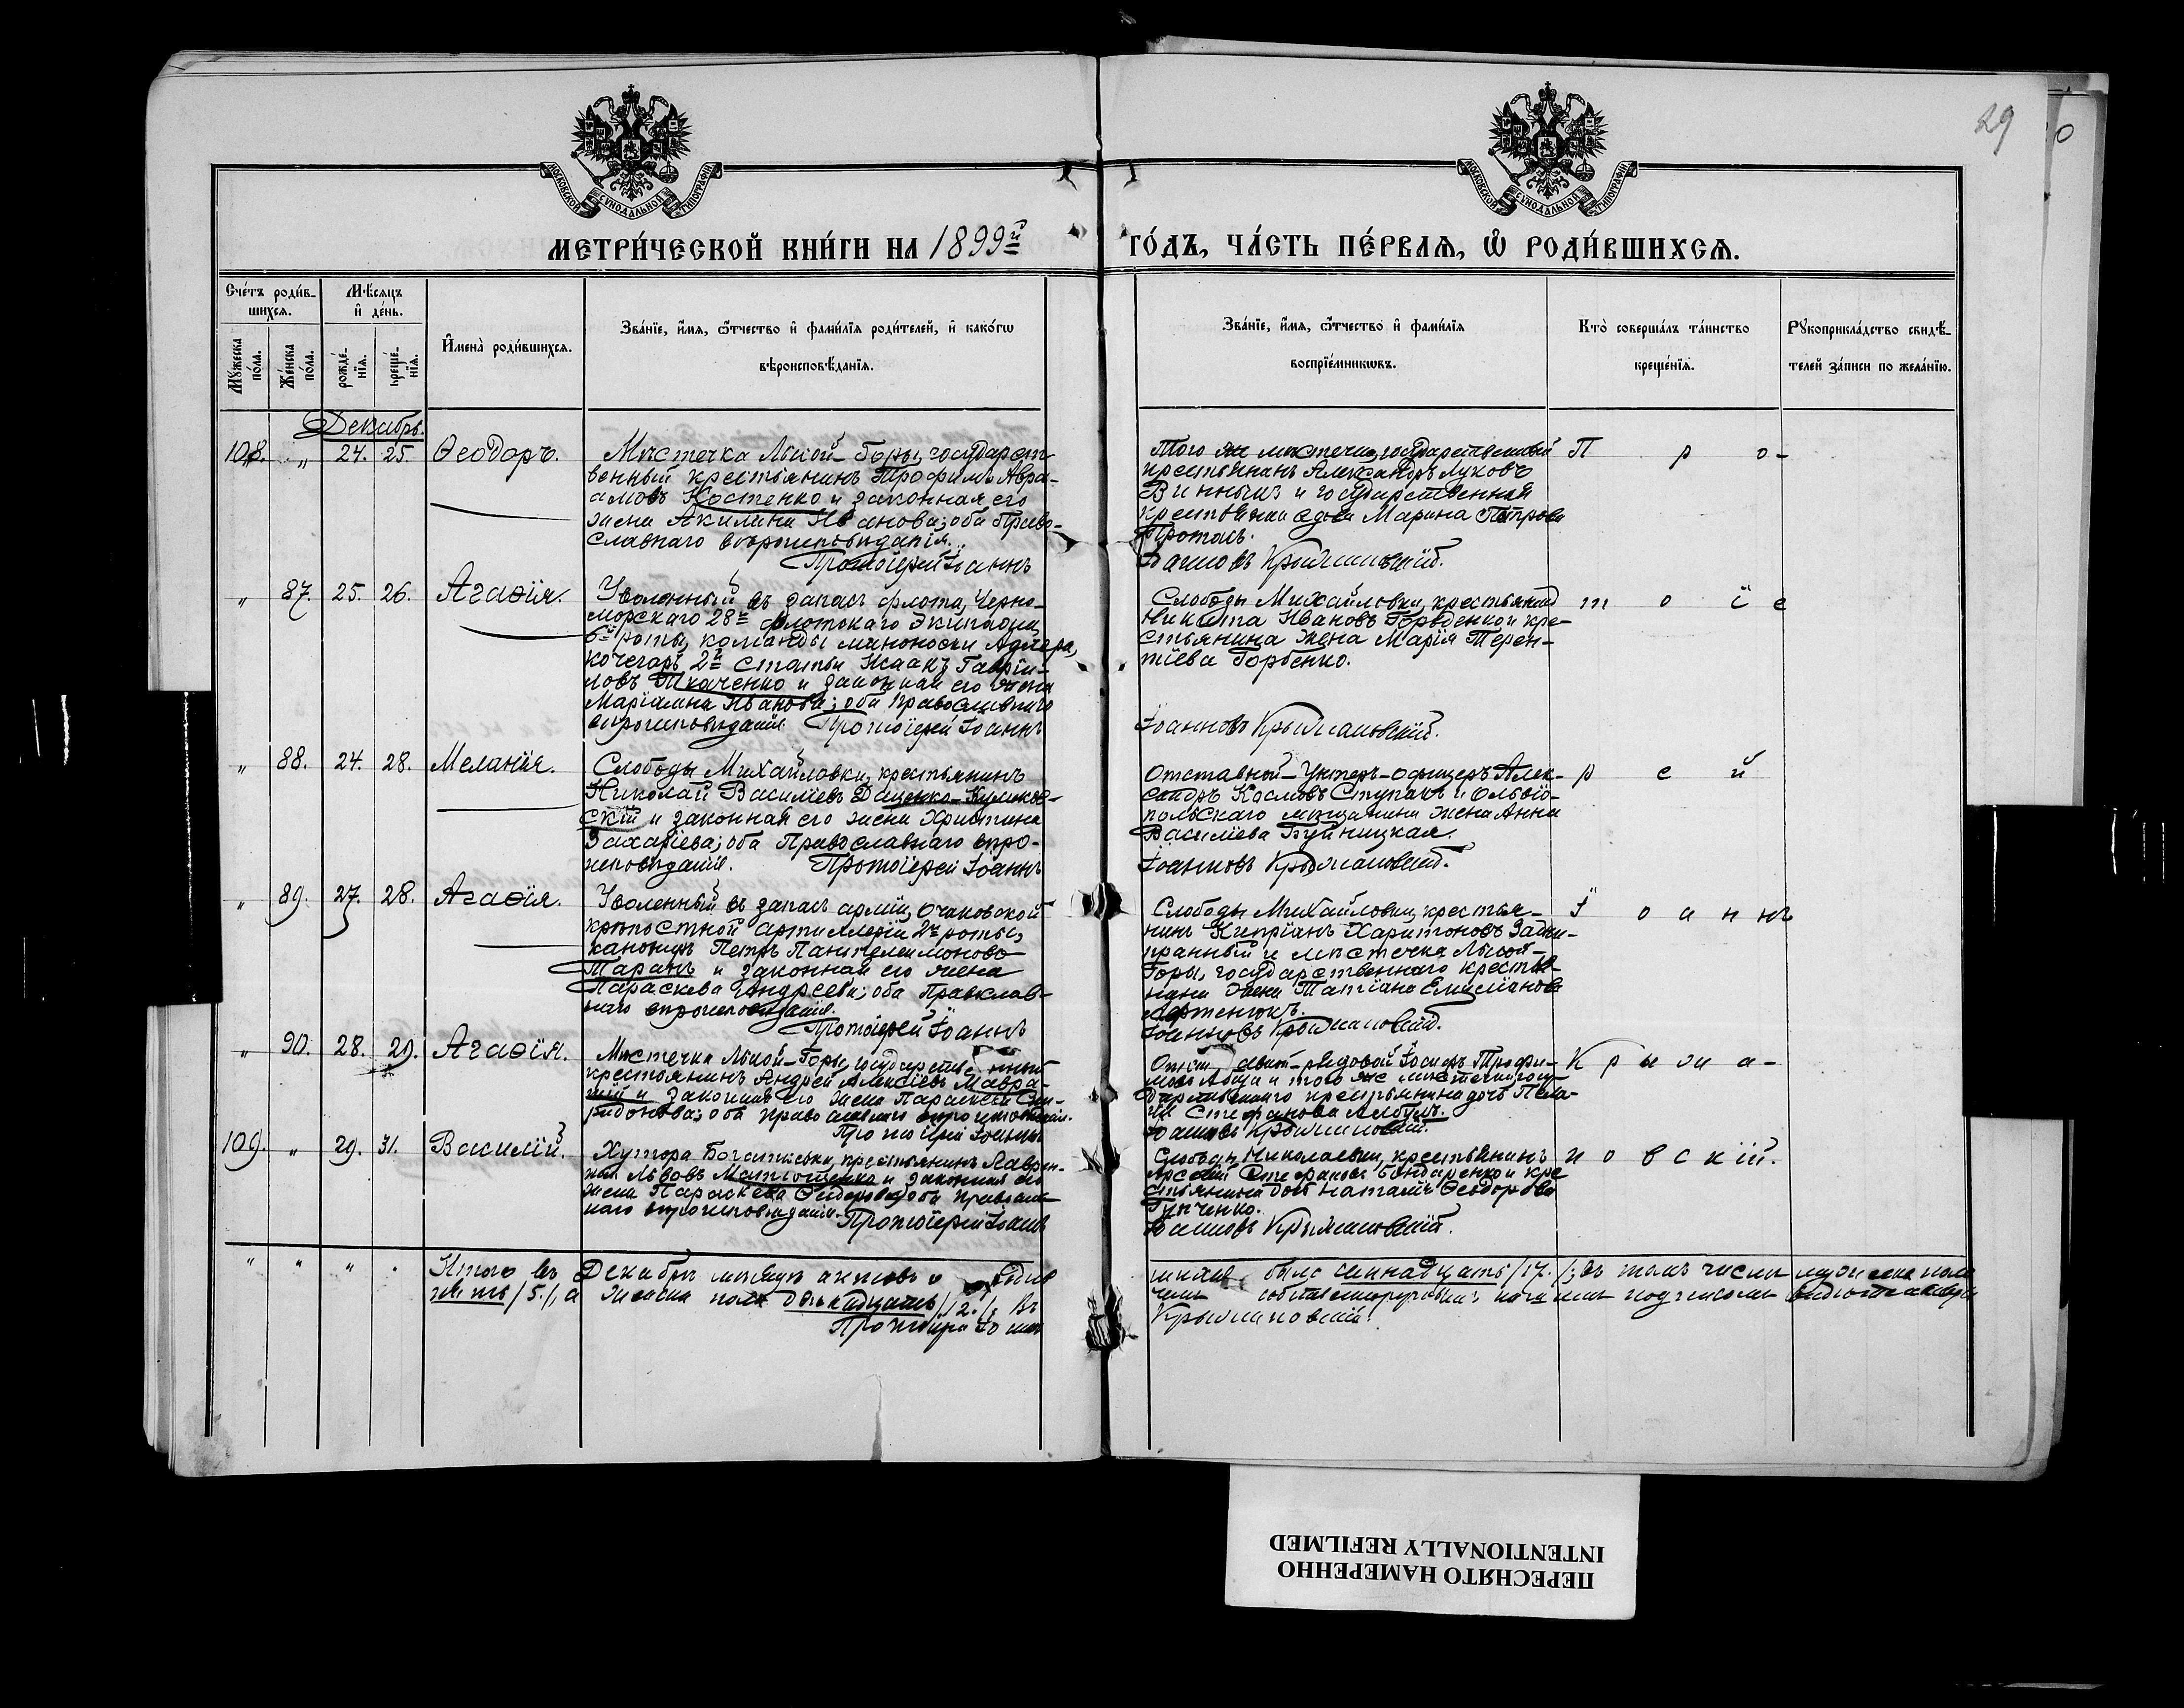 29
МОСКОВСКОЙ СѴНОДАЛЬНОЙ ТИПОГРАФІИ
МОСКОВСКОЙ СѴНОДАЛЬНОЙ ТИПОГРАФІИ
МЕТРИ́ЧЕСКОЙ КНИ́ГИ НА 1899й ГО́ДЪ, ЧА́СТЬ ПЕ́РВАѦ, Ѡ҆ РОДИ́ВШИХСѦ.
Сче́тъ роди́в-
шихсѧ.
Мꙋжеска по́ла.
Же́нска по́ла.
Мѣ́сѧцъ
и҆ де́нь.
рожде́-
нїѧ.
креще́-
нїѧ.
И҆мена̀ роди́вшихсѧ.
Зва́нїе, и҆́мѧ, ѻ҆́тчество и҆ фами́лїѧ роди́телей, и҆ како́гѡ
вѣроисповѣ́данїѧ.
Зва́нїе, и҆́мѧ, ѻ҆́тчество и҆ фами́лїѧ
воспрїе́мникѡвъ.
Кто̀ соверша́лъ та́инство
креще́нїѧ.
Рꙋкоприкла́дство свидѣ́-
телей за́писи по жела́нїю.
Декабрь.
108. „ 24. 25. Ѳеодоръ.
Мѣстечка Лысой-Горы, государст-
венный крестьянинъ Трофимъ Авра-
амовъ Костенко и законная его
жена Акилина Иванова; оба Право-
славнаго вѣроисповѣданія.
Протоіерей Іоаннъ
Того же мѣстечка, государственный
крестьянинъ Александръ Луковъ
Винникъ и государственная
крестьянка вдова Марина Петрова
Іоанновъ Крыжановскій.
П р о-
„ 87. 25. 26. Агаѳія.
Уволенный въ запасъ флота, Черно-
морскаго 28го флотскаго Экипажа,
6й роты, команды миноноски Адлера,
кочегаръ 2й статьи Исаакъ Гаврии-
ловъ Ткаченко и законная его жена
Маріамна Иванова; оба Православнаго
вѣроисповѣданія. Протоіерей Іоаннъ
Слободы Михайловки, крестьянинъ
Никита Ивановъ Горбенко и кре-
стьянина жена Марія Терен-
тіева Горбенко.
Іоанновъ Крыжановскій.
т о і е
„ 88. 24. 28. Меланія.
Слободы Михайловки, крестьянинъ
Николай Василіевъ Даценко-Куликов-
скій и законная его жена Христина
Захаріева; оба Православнаго вѣро-
исповѣданія. Протоіерей Іоаннъ
Отставной-Унтеръ-Офицеръ Алек-
сандръ Космовъ Ступакъ и Ольвіо-
польскаго мѣщанина жена Анна
Василіева Буйницкая.
Іоанновъ Крыжановскій.
р е й
„ 89. 27. 28. Агаѳія.
Уволенный въ запасъ арміи, Очаковской
крѣпостной артиллеріи 2й роты,
канониръ Петръ Пантелеимоновъ
Таранъ и законная его жена
Параскева Андреева; оба Православ-
наго вѣроисповѣданія.
Протоіерей Іоаннъ
Слободы Михайловки, крестья-
нинъ Кипріанъ Харитоновъ
и мѣстечка Лысой-
Горы, государственнаго крестья-
нина жена Татіана Емиліанова
Іоанновъ Крыжановскій.
І о а н нъ
„ 90. 28. 29. Агаѳія.
Мѣстечка Лысой-Горы, государственный
крестьянинъ Андрей Алексіевъ Мавра-
и законная его жена Параскева Спи-
ридонова; оба православнаго вѣроисповѣданія.
Протоіерей Іоаннъ
рядовой Іосифъ Трофи-
мовъ и того же мѣстечка госу-
дарственнаго крестьянина дочь Пела-
гія Стефанова
Іоанновъ Крыжановскій.
К р ы ж а-
109. „ 29. 31. Василій.
Хутора крестьянинъ Лаврен-
тій Львовъ Матющенко и законная его
жена Параскева Ѳеодорова; оба православ-
наго вѣроисповѣданія. Протоіерей Іоаннъ
Слободы Николаевки, крестьянинъ
Стефановъ Бондаренко и кре-
стьянина дочь Наталія Ѳеодорова
Іоанновъ Крыжановскій.
н о в с кій.
„ „ „ „ Итого въ Декабрѣ мѣсяцѣ актовъ о родив
шихся было семнадцать /17./; въ томъ числѣ мужеска пола
пять /5./, а женска пола двѣнадцать /12./. Въ
чемъ собственноручнымъ нашимъ подписомъ
Протоіерей Іоаннъ Крыжановскій.
ПЕРЕСНЯТО НАМЕРЕННО
INTENTIONALLY REFILMED